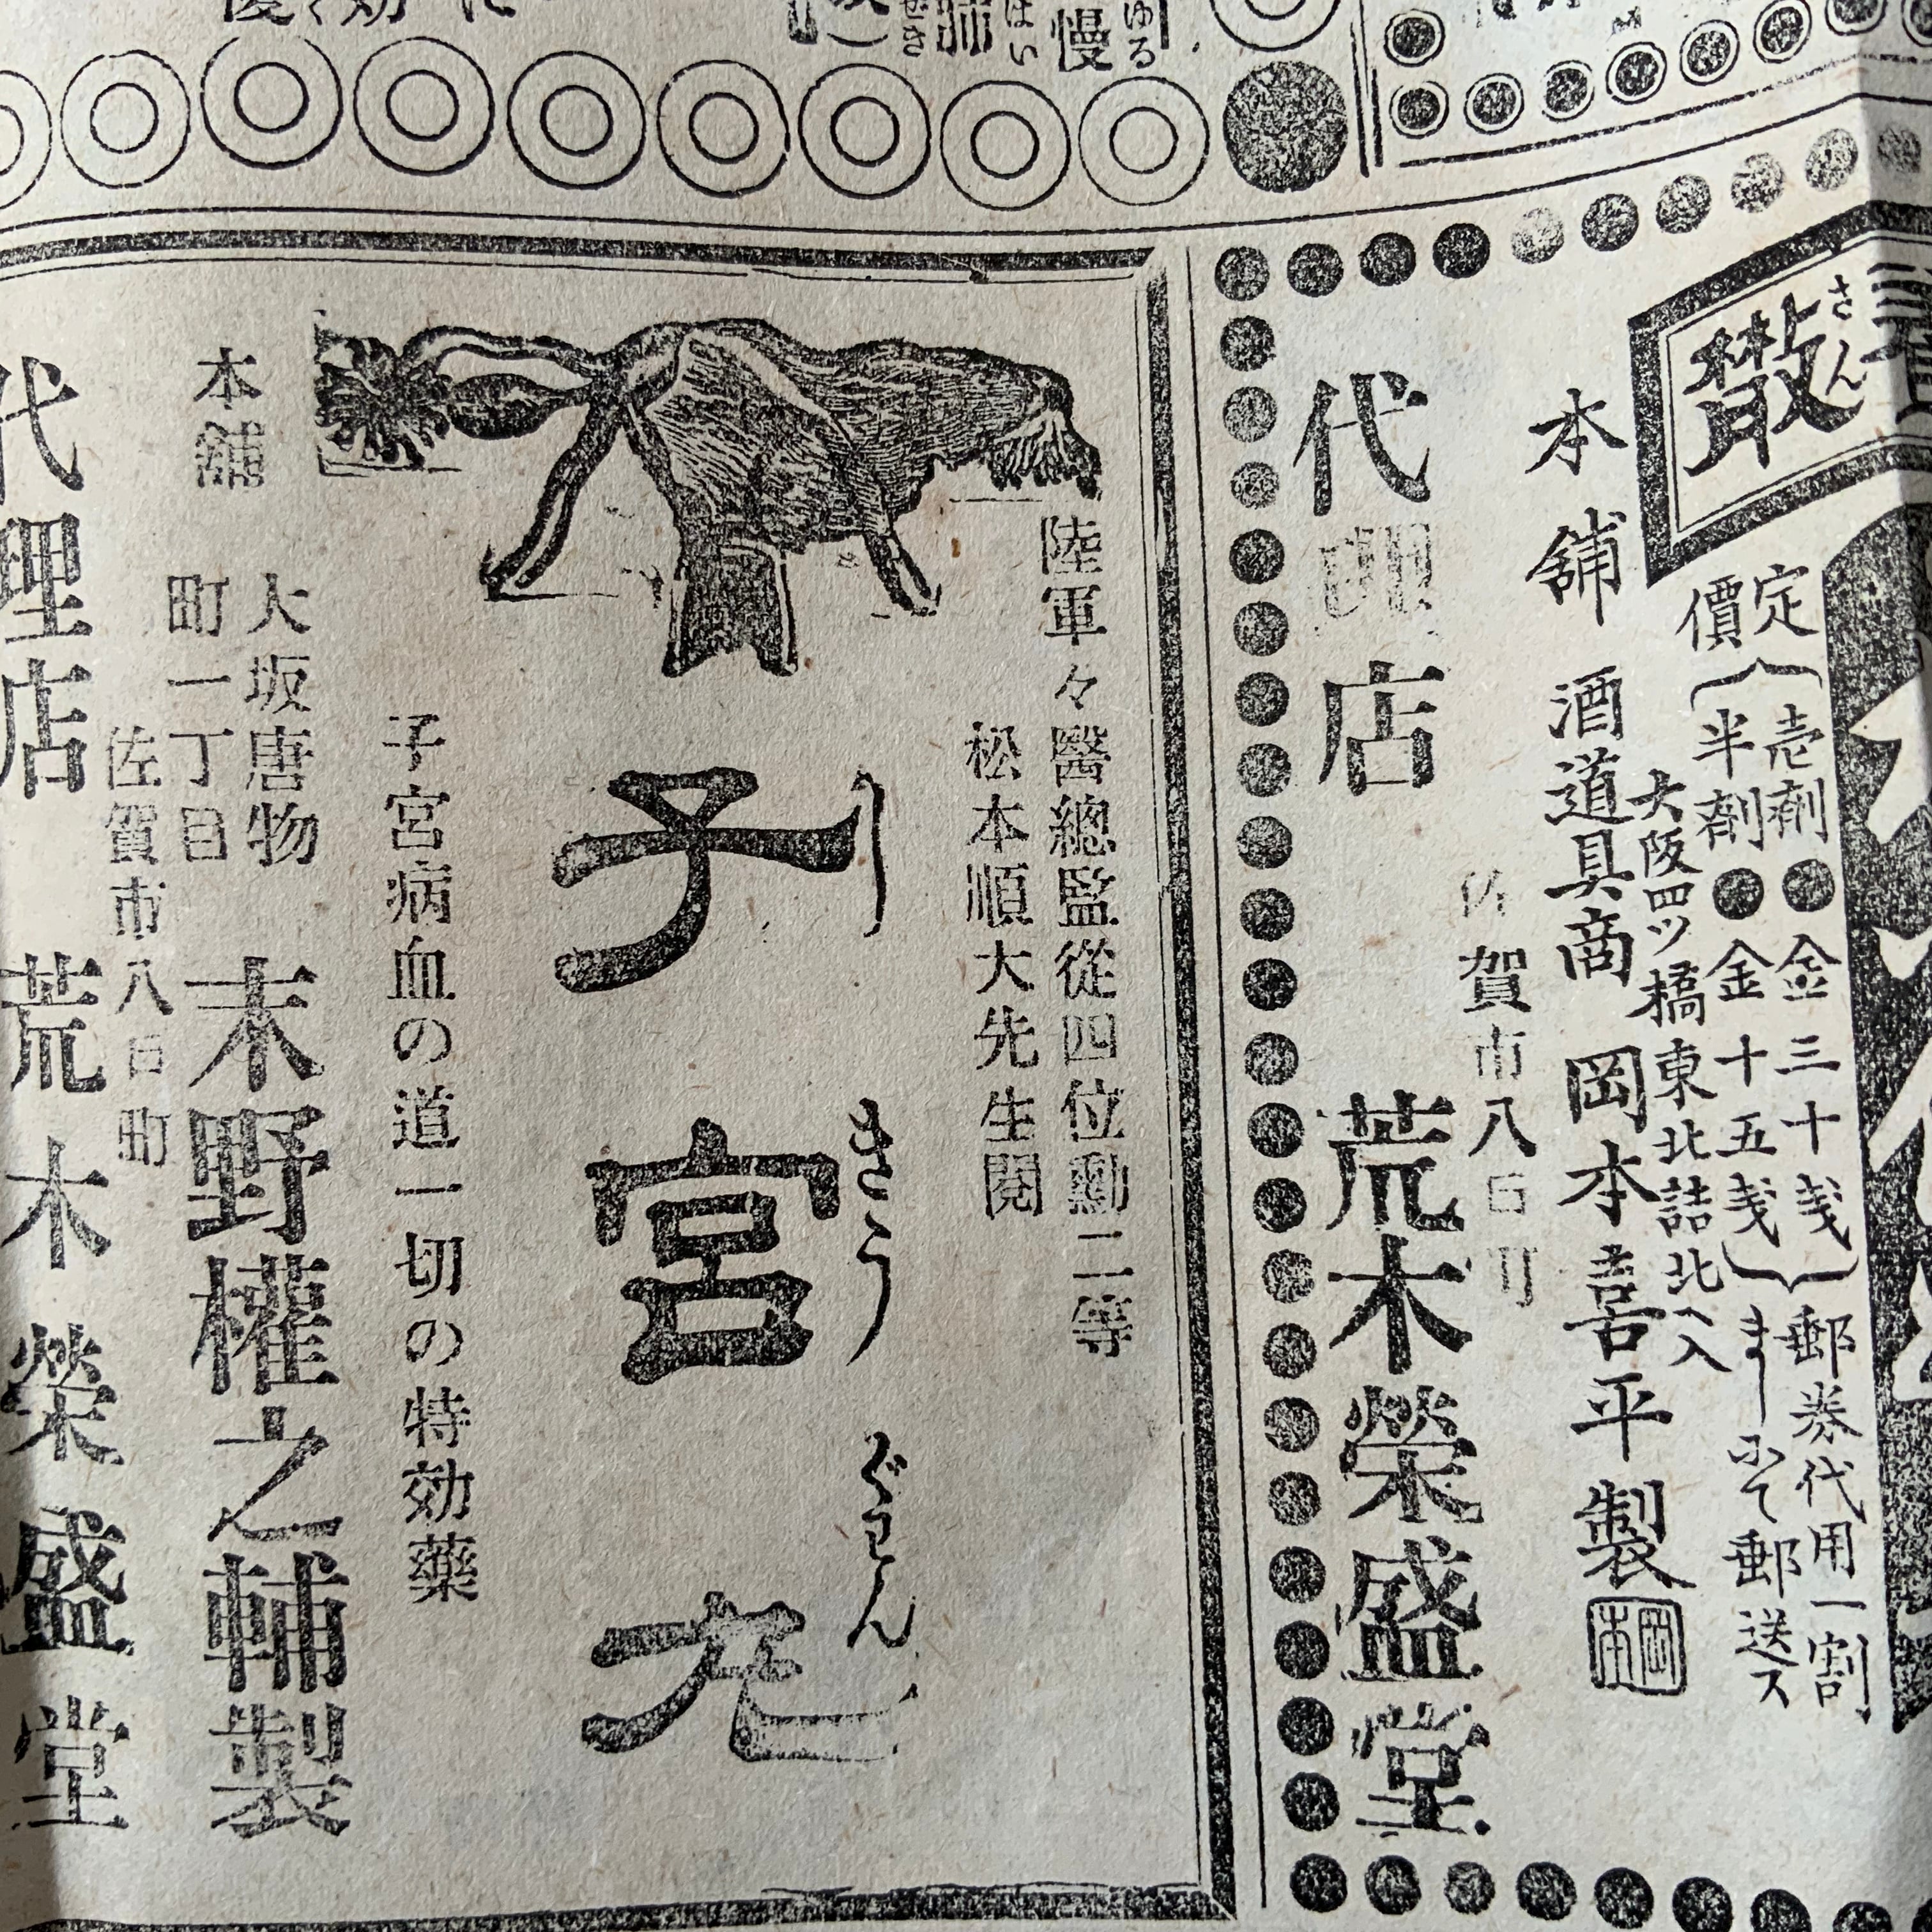 散
さん
定價
壱劑●金三十戔
半劑●金十五戔
郵券代用一割
ましにて郵送ス
大阪四ツ橋東北詰北へ入
本舗 酒道具商 岡本喜平製
岡本
佐賀市八日町
代理店 荒木榮盛堂
陸軍々醫總監從四位勳二等
松本順大先生閲
しきうぐわん
子宮丸
子宮病血の道一切の特効藥
大坂唐物
町一丁目
本舖 末野權之輔製
佐賀市八日町
代理店 荒木榮盛堂